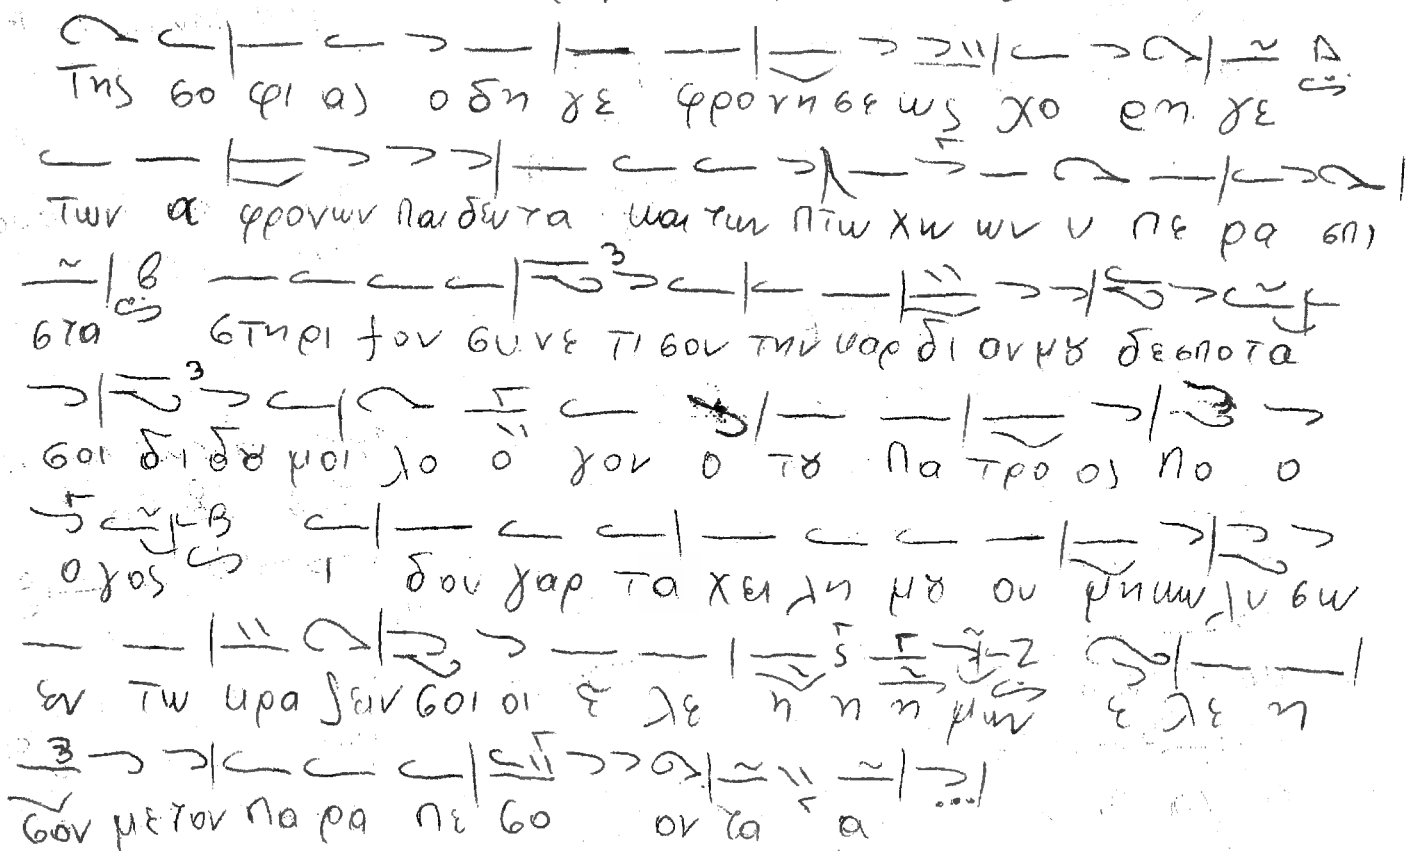 Της σο φι ας ο δη γε φρονησε ως χο ρη γε
των α φρονων παιδευτα και των πτω χω ων υ πε ρα σπι
στα στηρι ξον συνε τισον την καρ δι αν μȣ δεσποτα
σοι δι δȣ μοι λο ο γον ο τȣ Πα τρο ος Λο ο
ο γος ι δου γαρ τα χει λη μȣ ου μηκωλυσω
εν τω κρα ζειν σοι οι ε λε η η η μων ε λε η
σον με τον πα ρα πε σο ον τα α